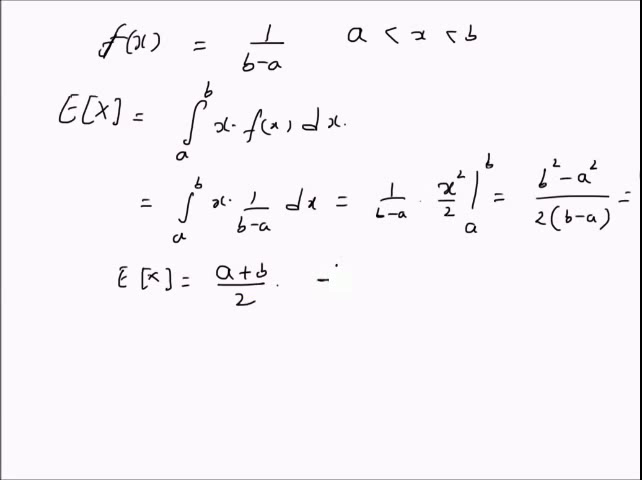 f(x) = 1/(b-a) a < x < b
E[X] = ∫_a^b x · f(x) dx.
= ∫_a^b x · 1/(b-a) dx = 1/(b-a) · x²/2 |_a^b = (b² - a²)/(2(b-a)) =
E[x] = (a+b)/2 . -